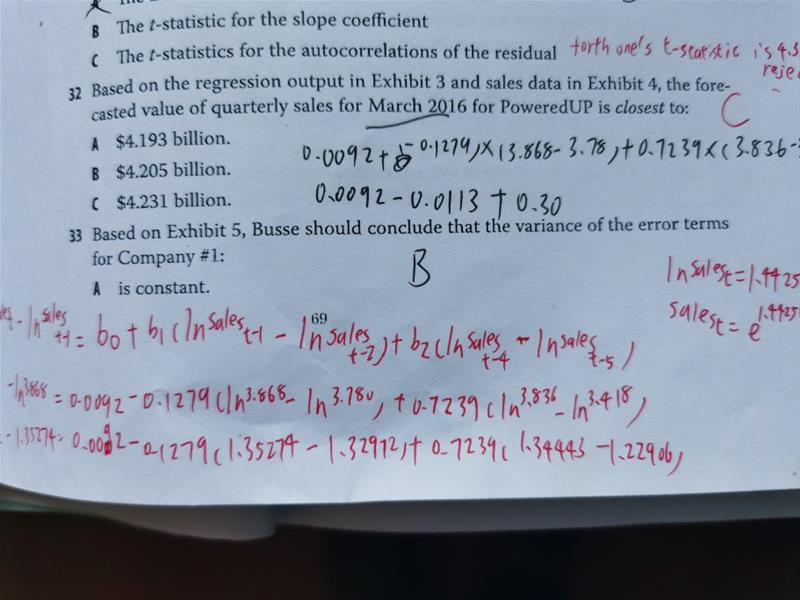 B The t-statistic for the slope coefficient
C The t-statistics for the autocorrelations of the residual
torth one's t-statistic is 4.3
rejec
32 Based on the regression output in Exhibit 3 and sales data in Exhibit 4, the fore-
casted value of quarterly sales for March 2016 for PoweredUP is closest to:
C
A $4.193 billion.
B $4.205 billion.
C $4.231 billion.
0.0092 + (-0.1279) × (3.868 - 3.78) + 0.7239 × (3.836 -
0.0092 - 0.0113 + 0.30
33 Based on Exhibit 5, Busse should conclude that the variance of the error terms
for Company #1:
B
A is constant.
ln sales t = 1.4425
sales t = e 1.4425
69
- ln sales t-1 = b0 + b1 (ln sales t-1 - ln sales t-2) + b2 (ln sales t-4 - ln sales t-5)
- ln 3.868 = 0.0092 - 0.1279 (ln 3.868 - ln 3.780) + 0.7239 (ln 3.836 - ln 3.418)
- 1.35274 = 0.0092 - 0.1279 (1.35274 - 1.32972) + 0.7239 (1.34443 - 1.22906)